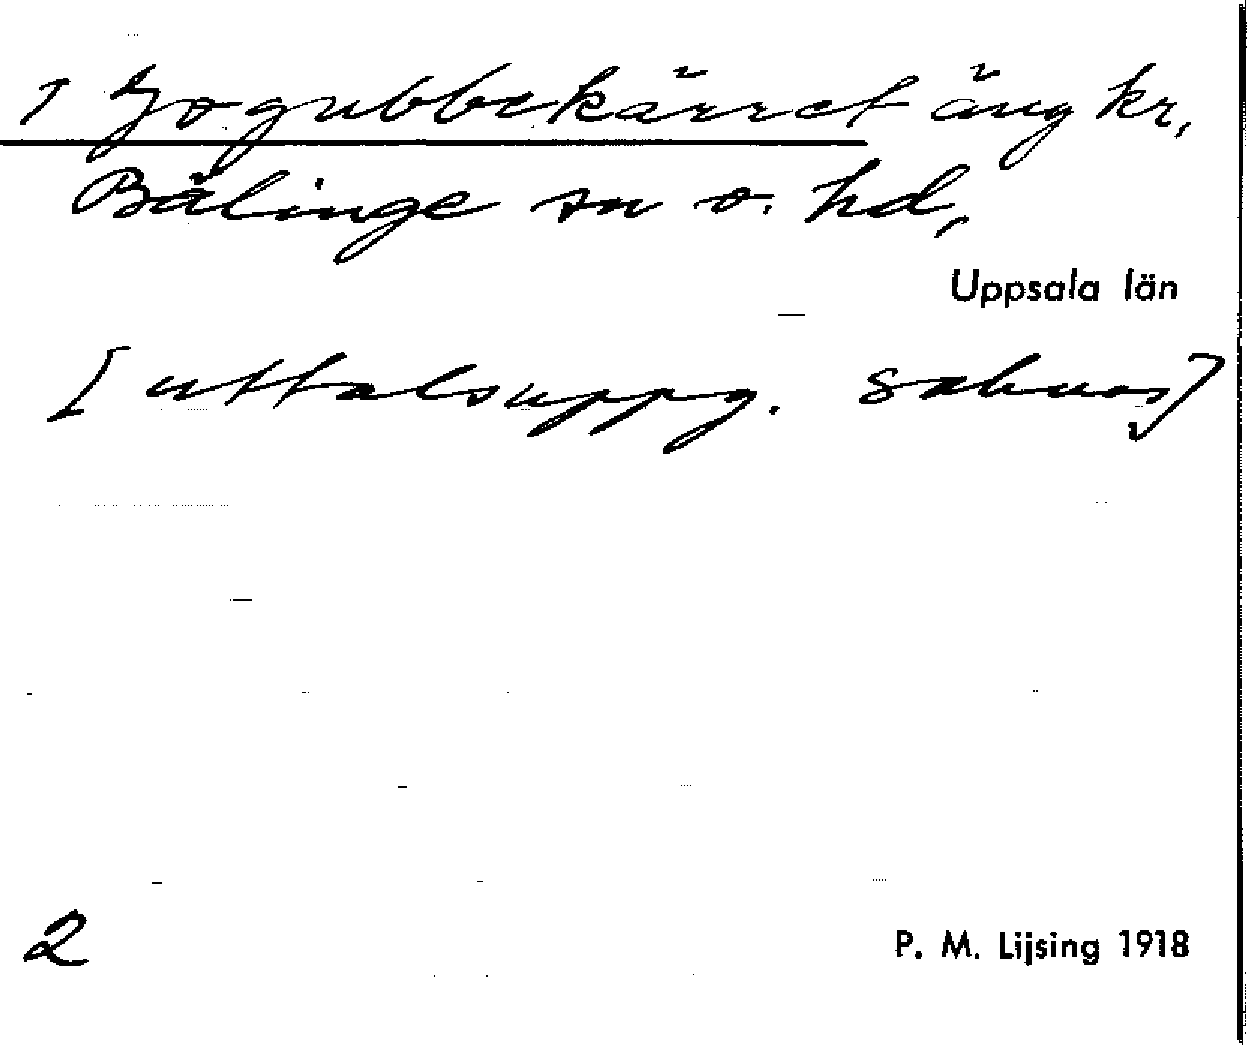 1 Jogubbekärret äng kr,
Bälinge sn o. hd,
Uppsala län
[uttalsuppg. saknas]
2
P. M. Lijsing 1918